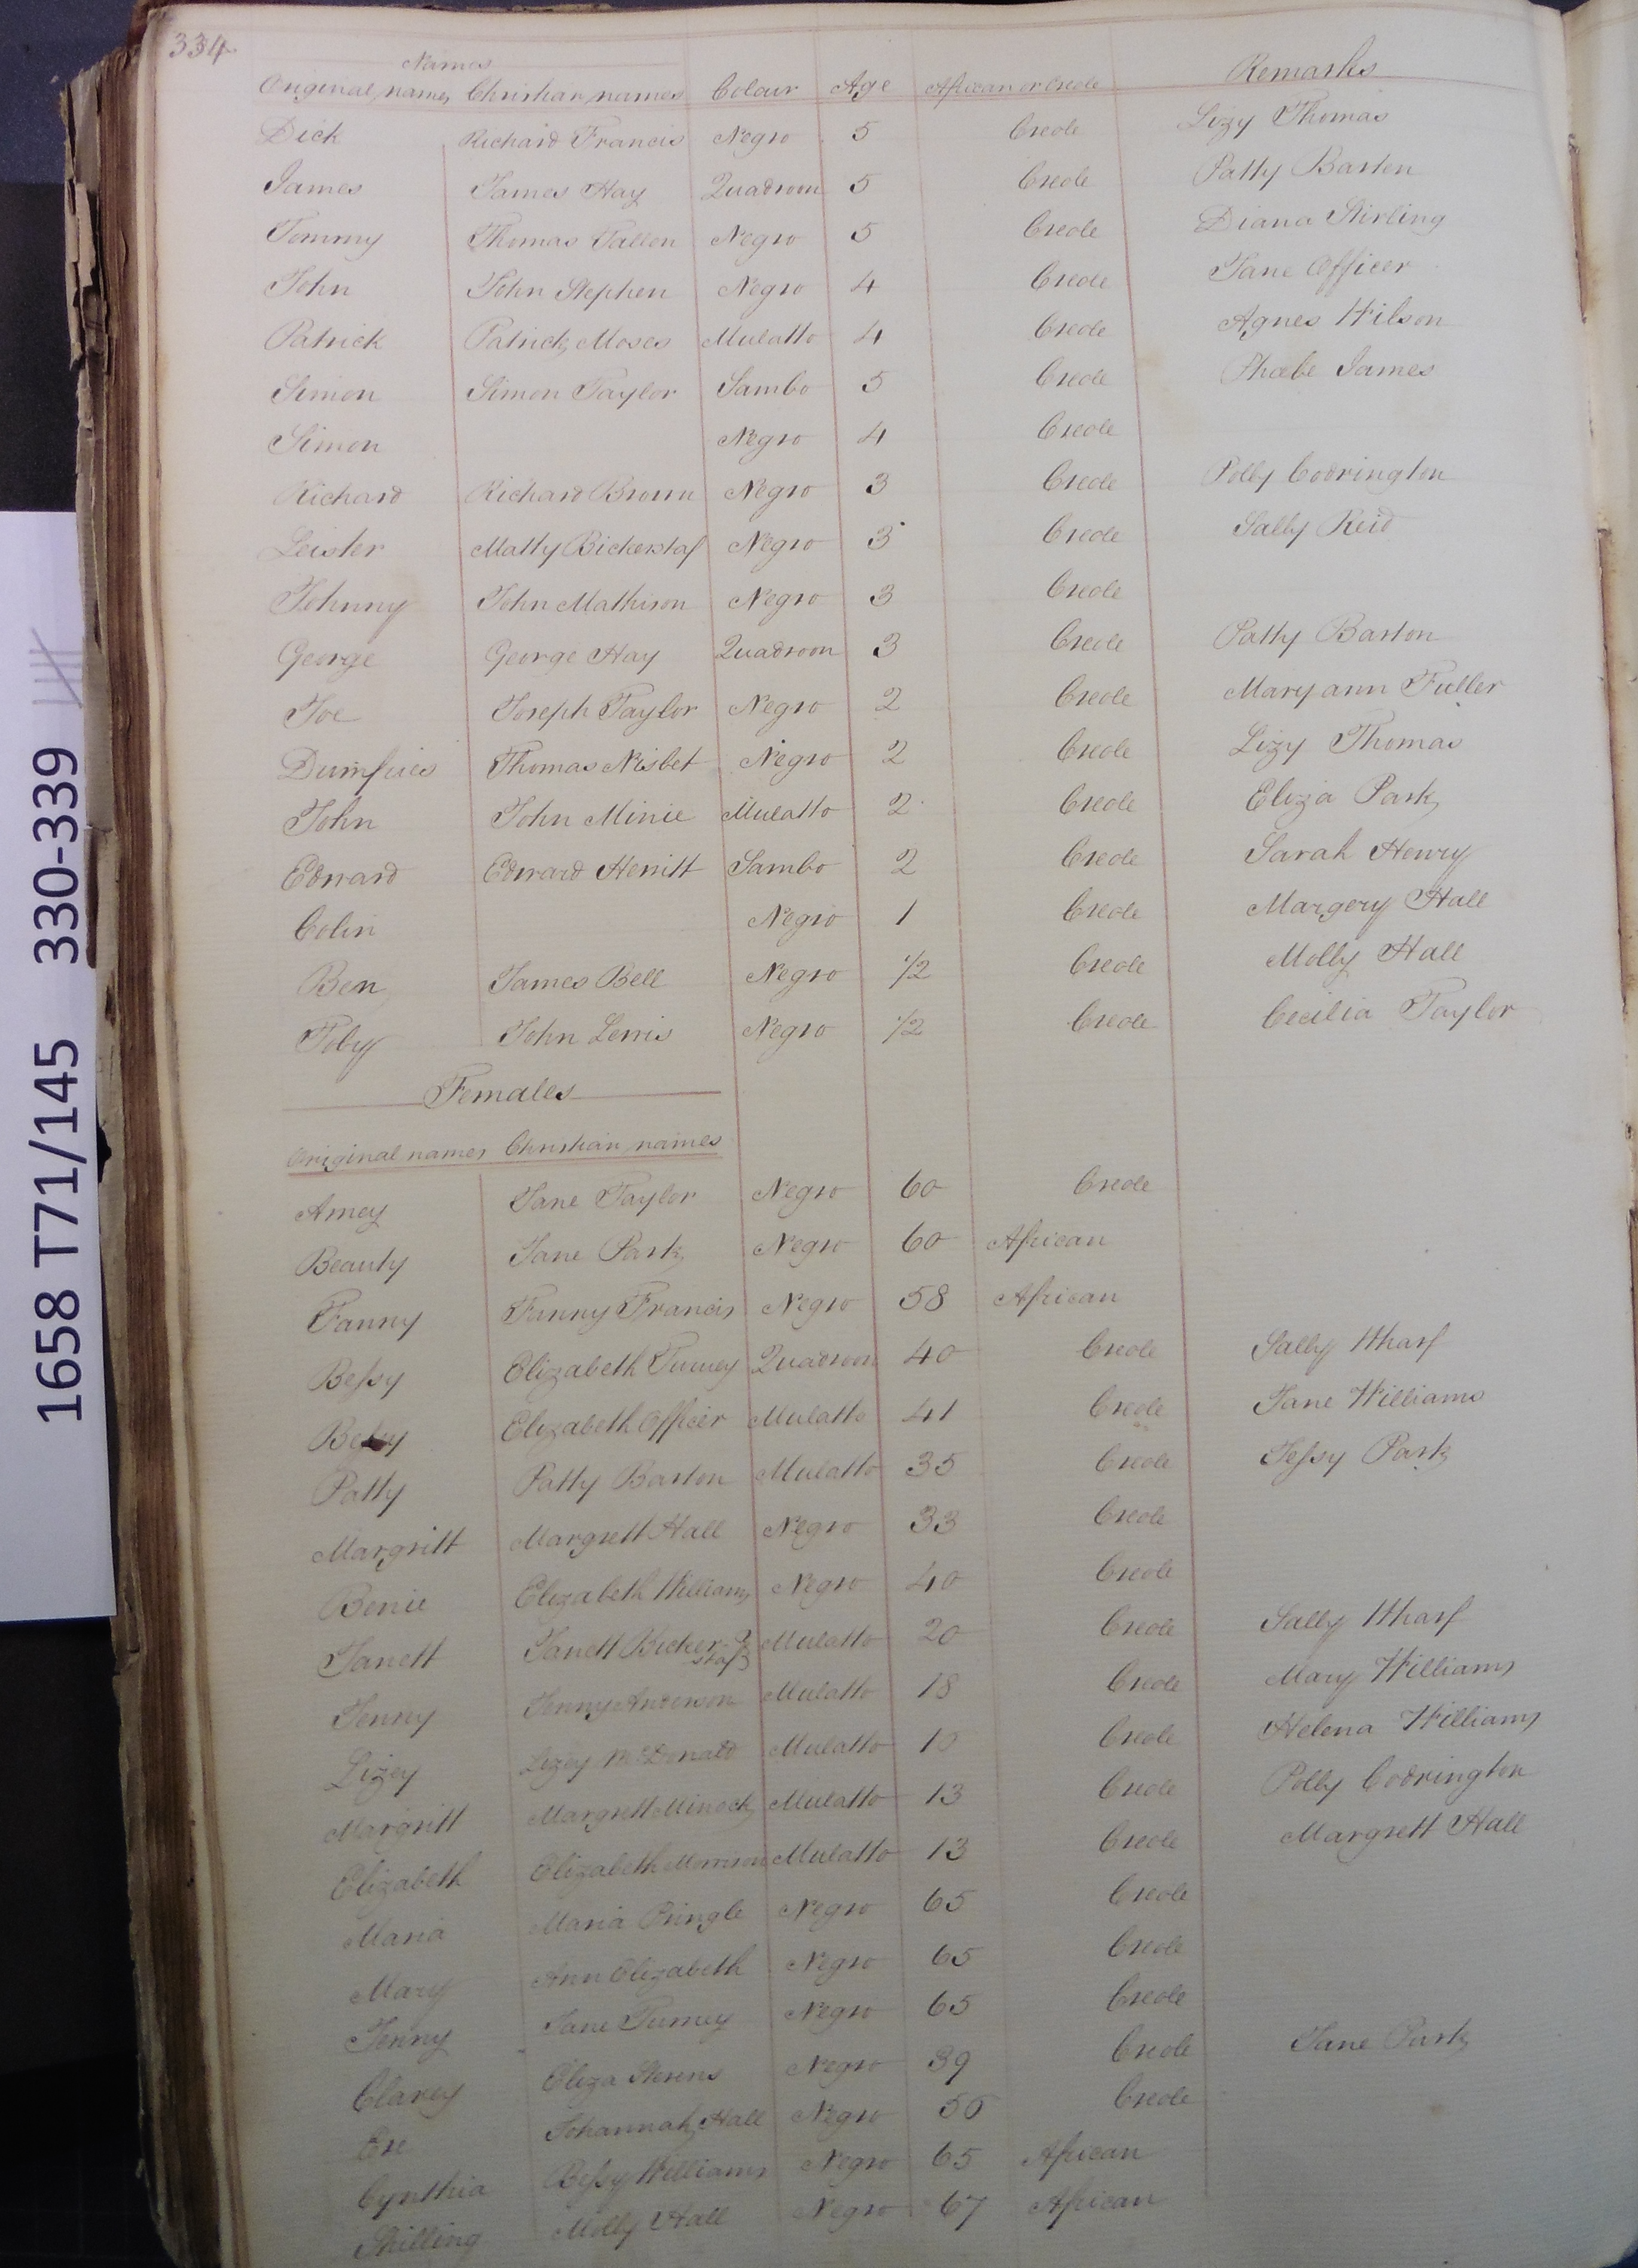 334
Names
Original names Christian names Colour Age African or Creole Remarks
Dick Richard Francis Negro 5 Creole Lizy Thomas
James James Hay Quadroon 5 Creole Patty Barton
Tommy Thomas Fallon Negro 5 Creole Diana Stirling
John John Stephen Negro 4 Creole Jane Officer
Patrick Patrick Moses Mulatto 4 Creole Agnes Wilson
Simon Simon Taylor Sambo 5 Creole Phœbe James
Simon Negro 4 Creole
Richard Richard Brown Negro 3 Creole Polly Codrington
Leister Matty Bickerstaf Negro 3 Creole Sally Reid
Johnny John Mathison Negro 3 Creole
George George Hay Quadroon 3 Creole Patty Barton
Joe Joseph Taylor Negro 2 Creole Maryann Fuller
Dumfries Thomas Nisbet Negro 2 Creole Lizy Thomas
John John Minie Mulatto 2 Creole Eliza Park
Edward Edward Hewitt Sambo 2 Creole Sarah Henry
Colin Negro 1 Creole Margery Hall
Ben James Bell Negro 1/2 Creole Molly Hall
Toby John Lewis Negro 1/2 Creole Cecilia Taylor
Females
Original names Christian names
Amey Jane Taylor Negro 60 Creole
Beauty Jane Park Negro 60 African
Fanny Fanny Francis Negro 58 African
Bessy Elizabeth Tumey Quadroon 40 Creole Sally Wharf
Betsy Elizabeth Officer Mulatto 41 Creole Jane Williams
Patty Patty Barton Mulatto 35 Creole Jessy Park
Margritt Margrett Hall Negro 33 Creole
Benie Elizabeth Williams Negro 40 Creole
Janett Janett Bicker-staf Mulatto 20 Creole Sally Wharf
Jenny Jenny Anderson Mulatto 18 Creole Mary Williams
Lizey Lizey McDonald Mulatto 10 Creole Helena Williams
Margritt Margrett Minock Mulatto 13 Creole Polly Codrington
Elizabeth Elizabeth Morrison Mulatto 13 Creole Margrett Hall
Maria Maria Pringle Negro 65 Creole
Mary Ann Elizabeth Negro 65 Creole
Jenny Jane Tumey Negro 65 Creole
Clarey Eliza Stevens Negro 39 Creole Jane Park
Eve Johannah Hall Negro 50 Creole
Cynthia Bessy Williams Negro 65 African
Shilling Molly Hall Negro 67 African
1658 T71/145 330-339